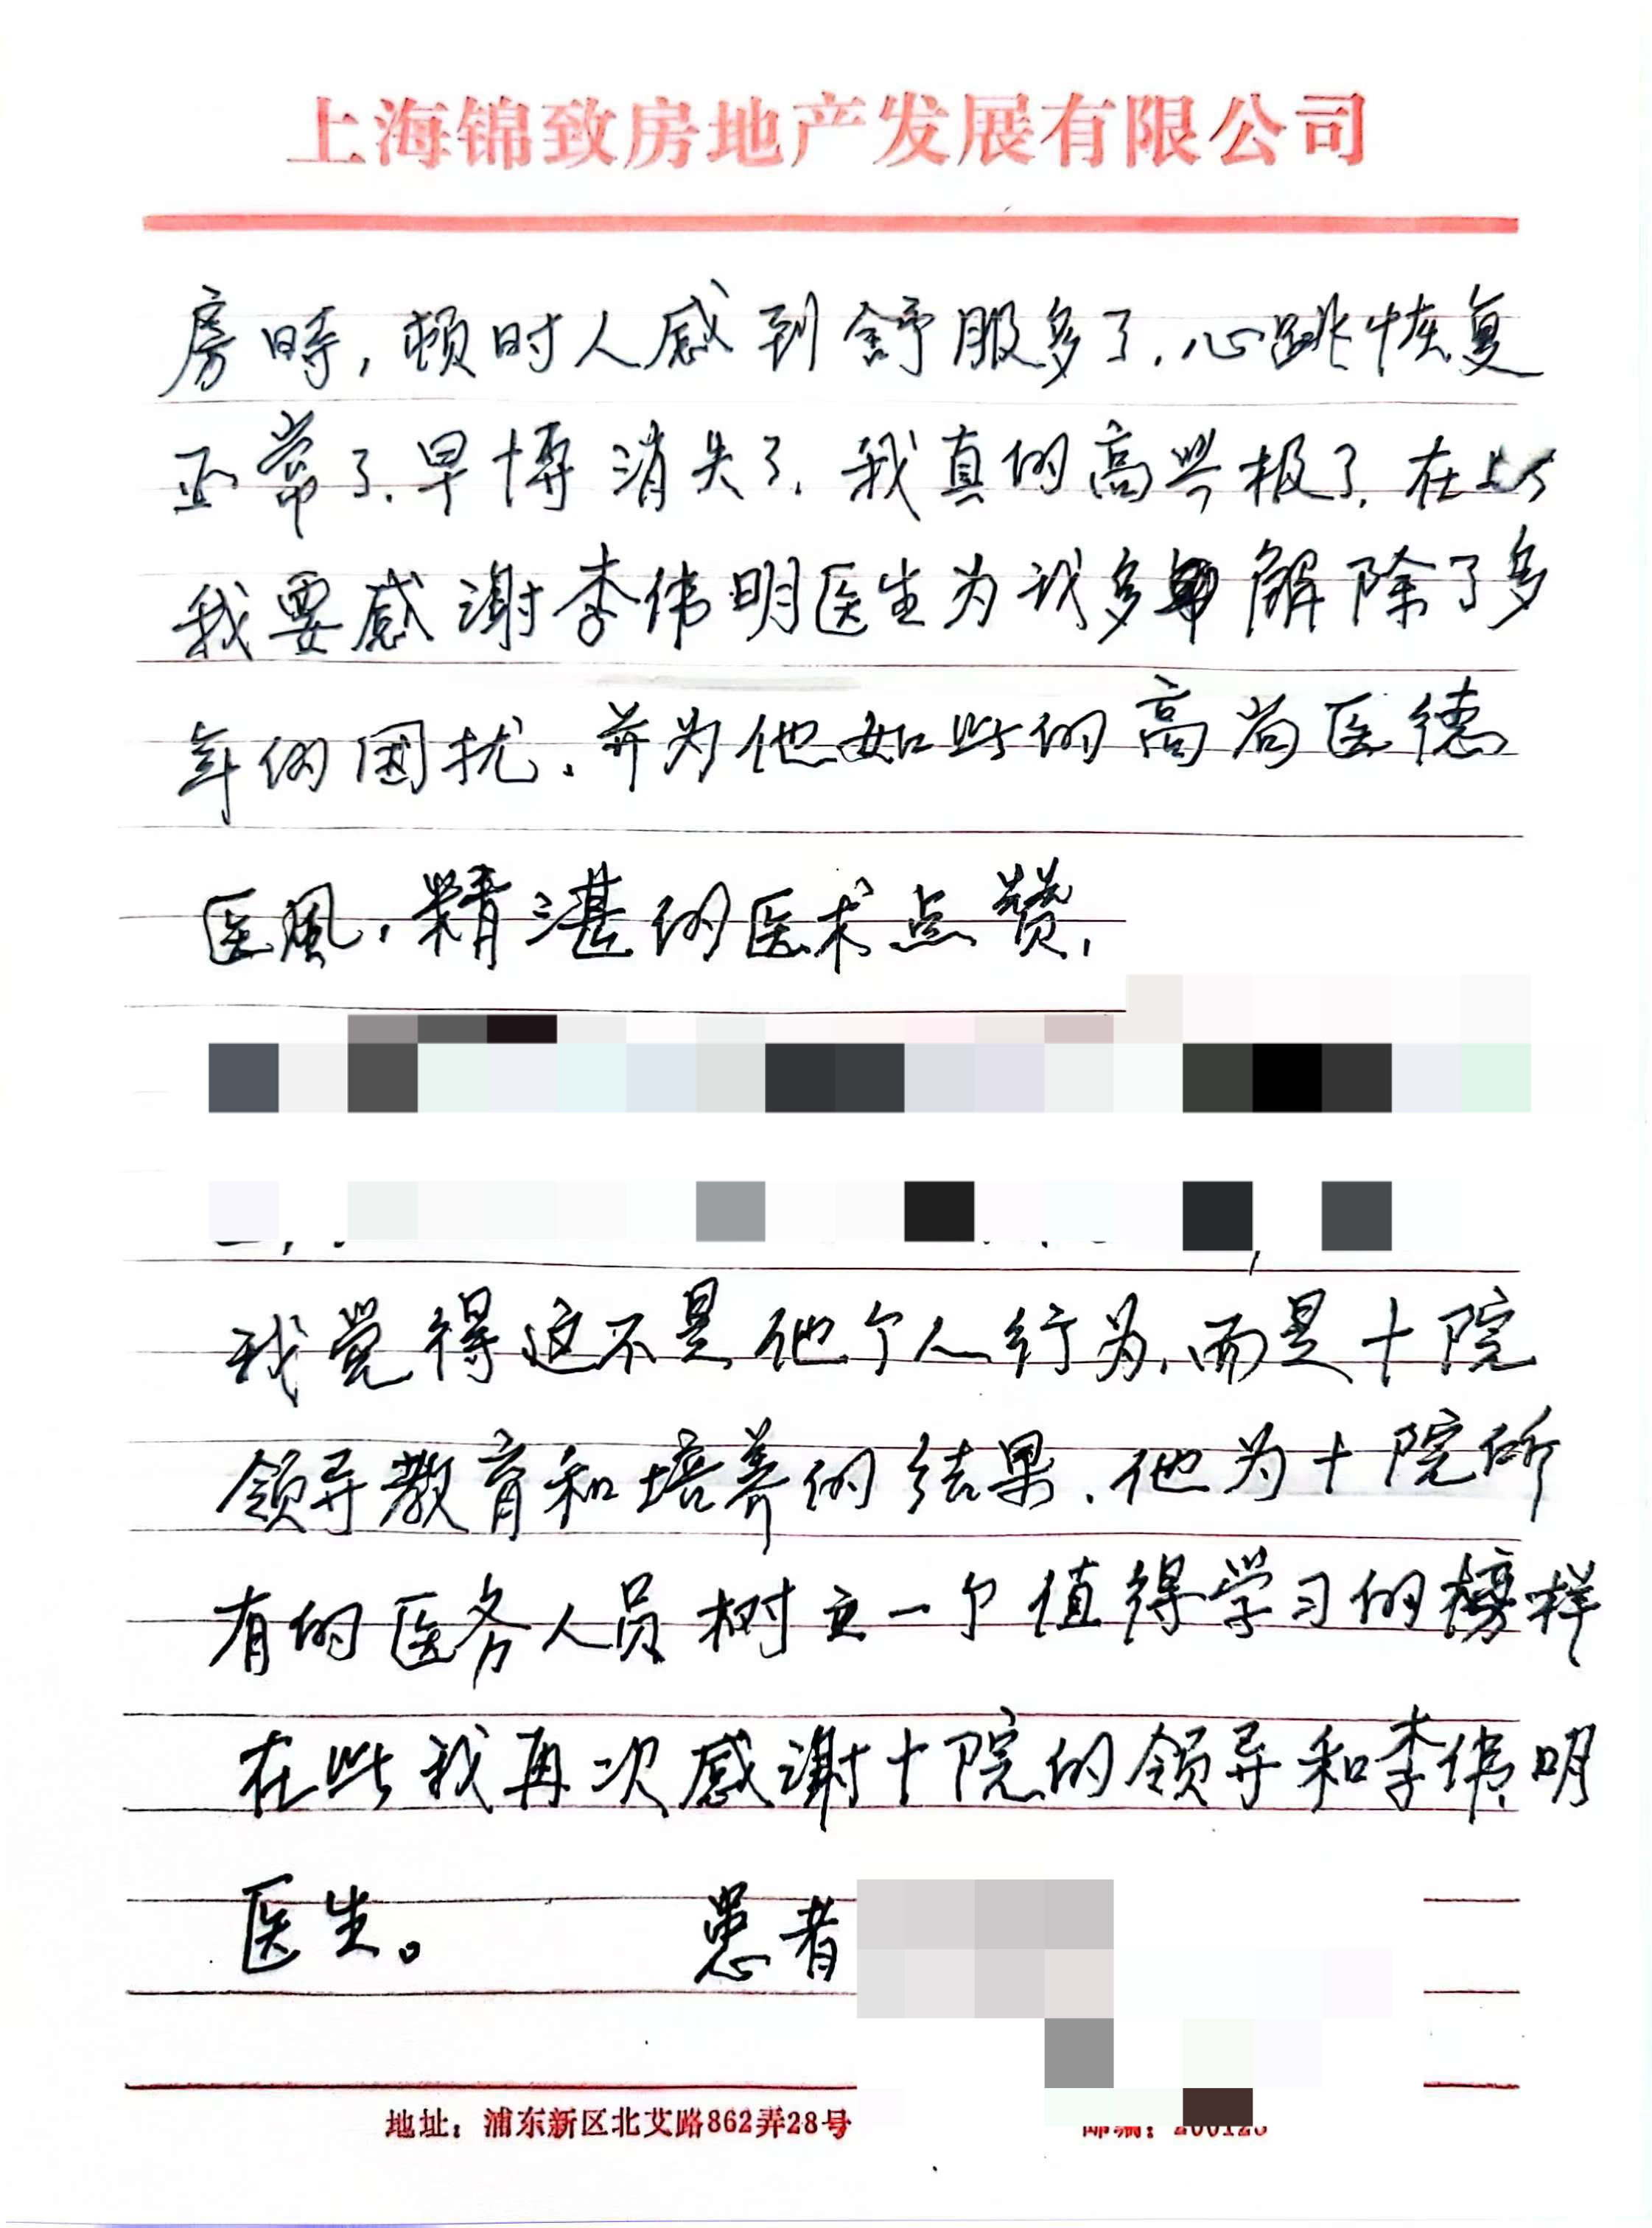 上海锦致房地产发展有限公司
房時,顿时人感到舒服多了.心跳恢复
正常了.早博消失了.我真的高兴极了.在此
我要感谢李伟明医生为我多年解除了多
年的困扰.并为他如此的高尚医德
医風,精湛的医术点赞.
我觉得这不是他个人行为.而是十院
领导教育和培养的结果.他为十院所
有的医务人员树立一个值得学习的榜样
在此我再次感谢十院的领导和李伟明
医生。 患者
地址：浦东新区北艾路862弄28号